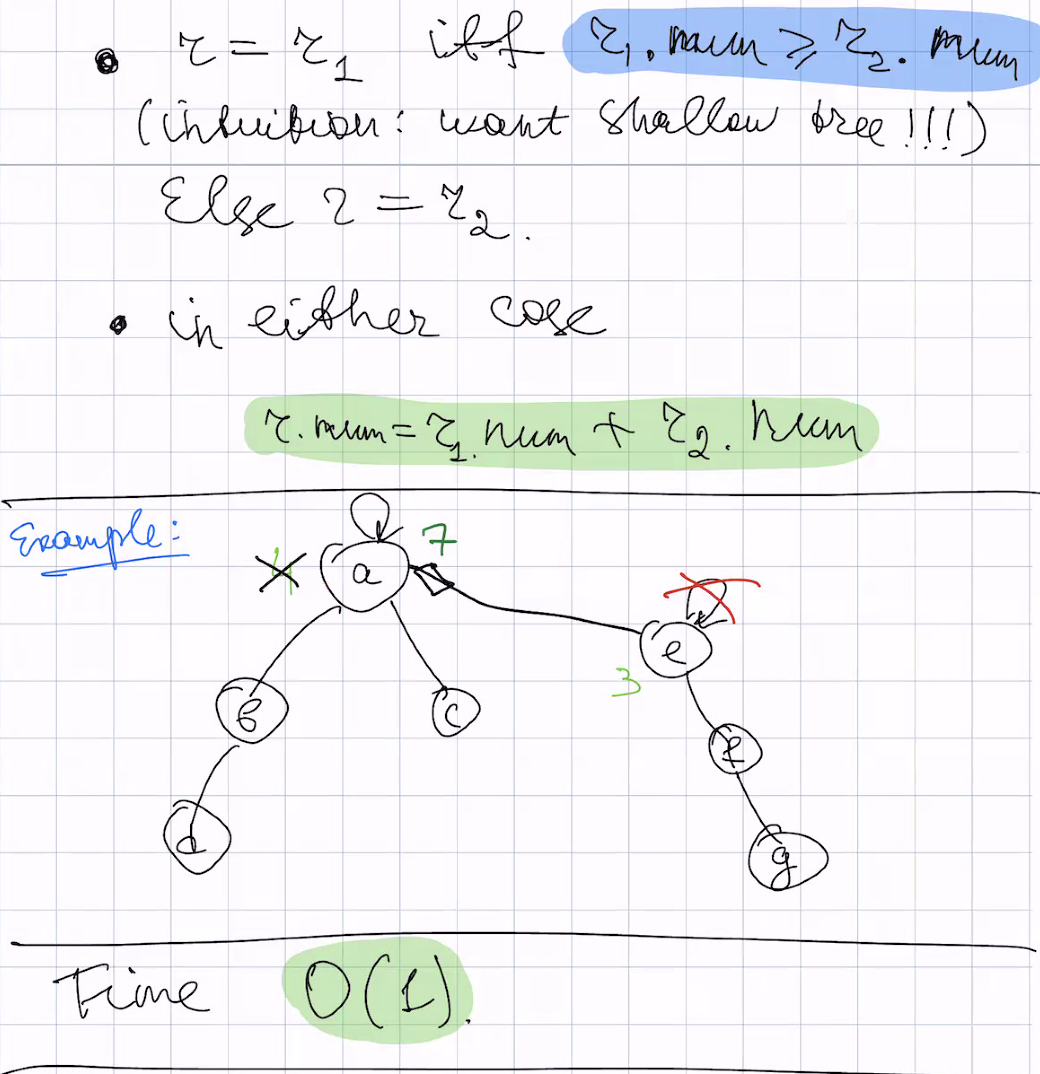 • r = r₁ iff r₁.num ≥ r₂.num
(intuition: want shallow tree!!!)
Else r = r₂.
• in either case
r.num = r₁.num + r₂.num
Example:
4 a 7
e
3
b c
f
d
g
Time O(1).